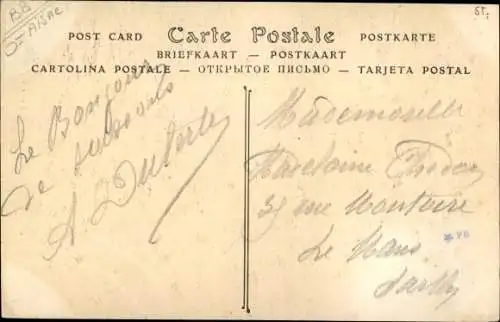 BB
Dt Aisne
5f.
POST CARD Carte Postale POSTKARTE
BRIEFKAART — POSTKAART
CARTOLINA POSTALE — ОТКРЫТОЕ ПИСЬМО — TARJETA POSTAL
Le Bonjour
de Soissons
A
Mademoiselle
Madeleine
35 rue Montoire
Le Mans
Sarthe